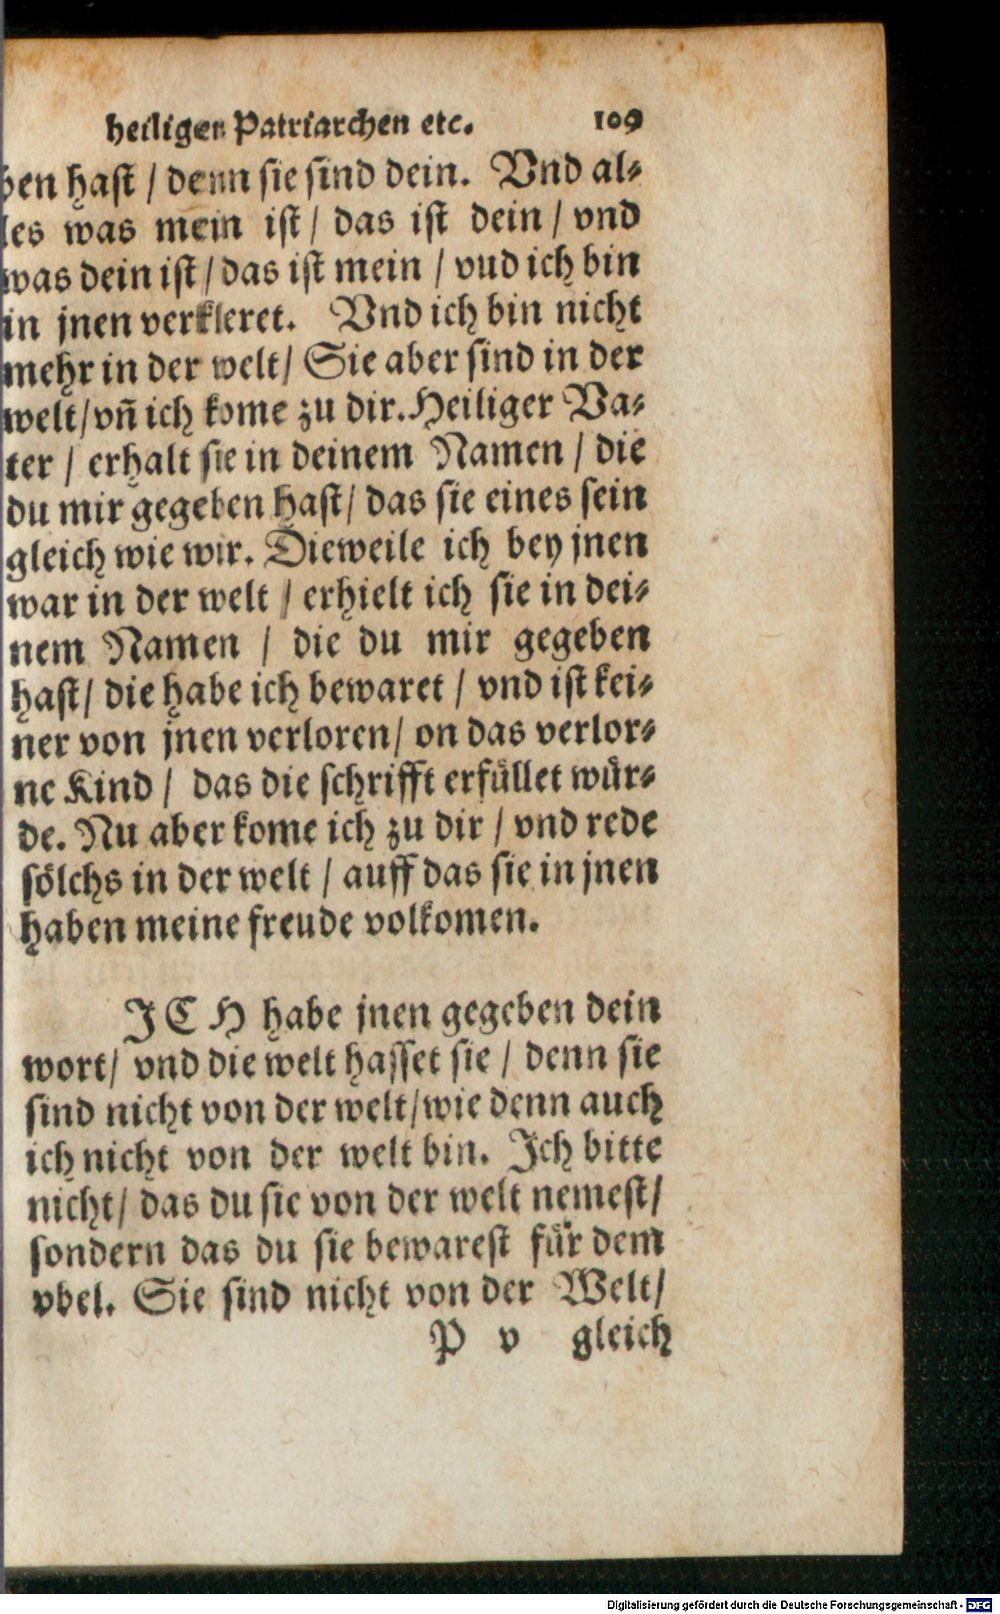 heiligen Patriarchen etc. 109
ben hast / denn sie sind dein. Vnd al⸗
les was mein ist / das ist dein / vnd
was dein ist / das ist mein / vud ich bin
in jnen verkleret. Vnd ich bin nicht
mehr in der welt / Sie aber sind in der
welt / vñ ich kome zu dir. Heiliger Va⸗
ter / erhalt sie in deinem Namen / die
du mir gegeben hast / das sie eines sein
gleich wie wir. Dieweile ich bey jnen
war in der welt / erhielt ich sie in dei⸗
nem Namen / die du mir gegeben
hast / die habe ich bewaret / vnd ist kei⸗
ner von jnen verloren / on das verlor⸗
ne Kind / das die schrifft erfüllet wür⸗
de. Nu aber kome ich zu dir / vnd rede
sölchs in der welt / auff das sie in jnen
haben meine freude volkomen.
JCH habe jnen gegeben dein
wort / vnd die welt hasset sie / denn sie
sind nicht von der welt / wie denn auch
ich nicht von der welt bin. Jch bitte
nicht / das du sie von der welt nemest /
sondern das du sie bewarest für dem
vbel. Sie sind nicht von der Welt /
P v gleich
Digitalisierung gefördert durch die Deutsche Forschungsgemeinschaft - DFG